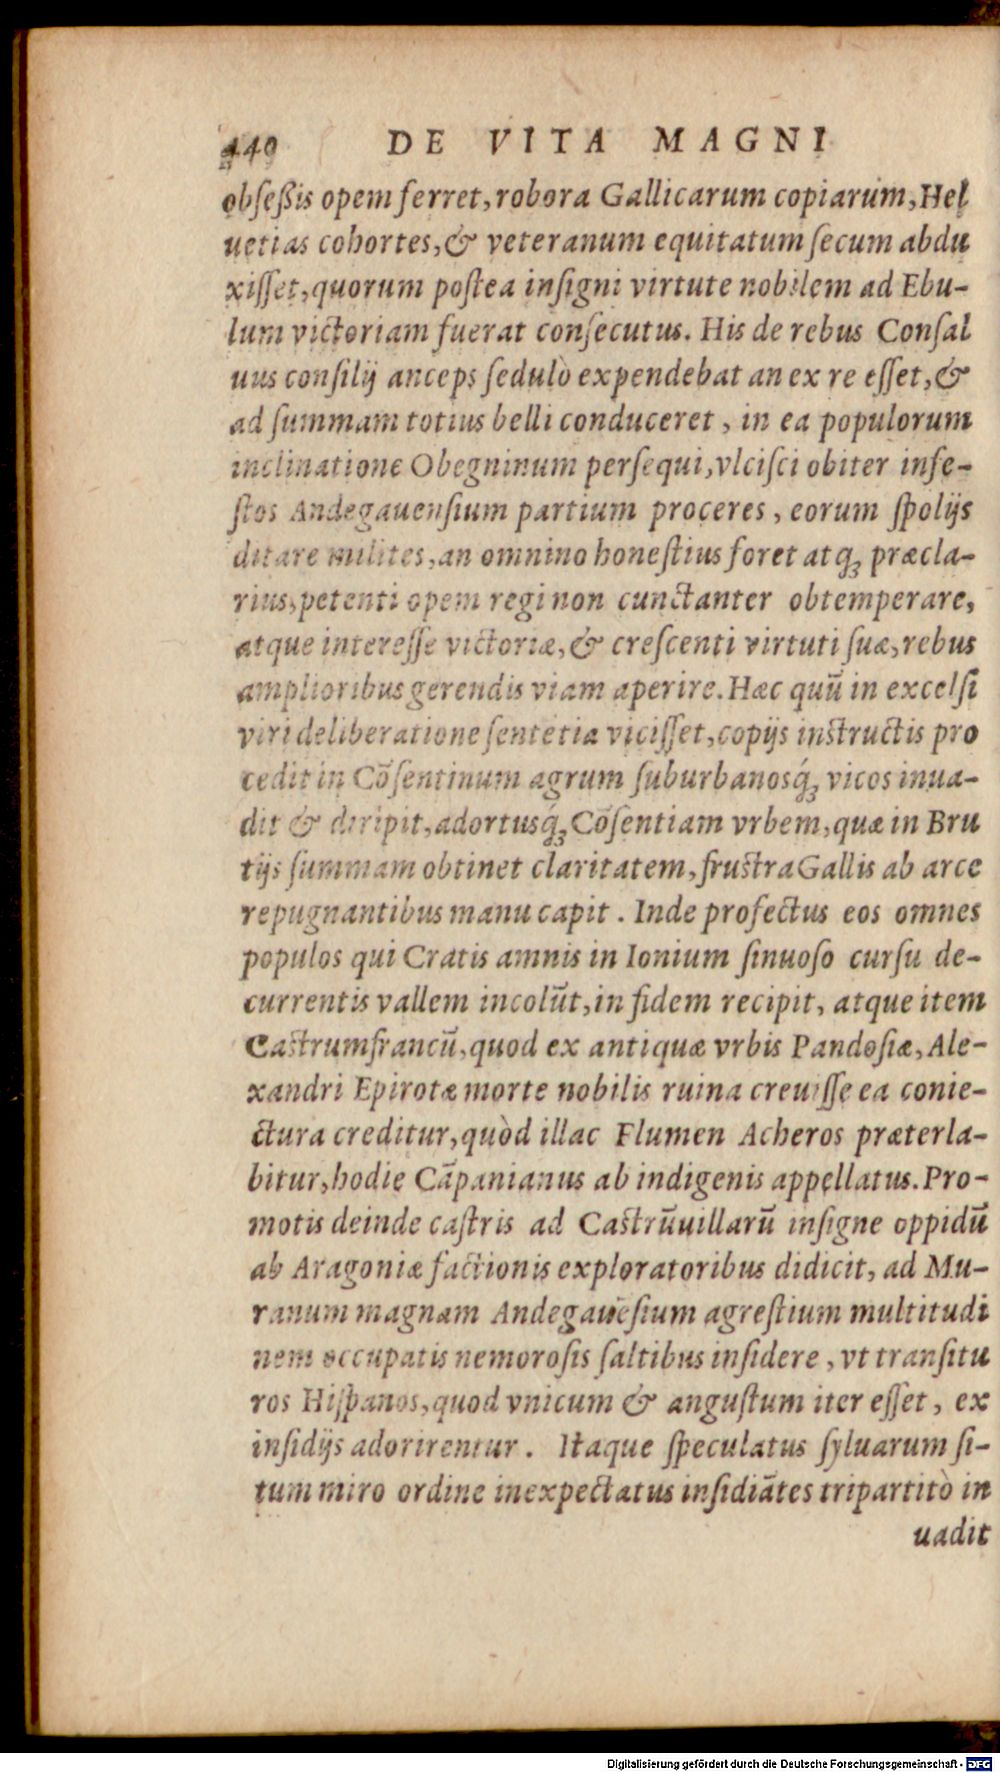 440 DE VITA MAGNI
obſeßis opem ferret, robora Gallicarum copiarum, Hel
uetias cohortes, & veteranum equitatum ſecum abdu
xiſſet, quorum poſtea inſigni virtute nobilem ad Ebu-
lum victoriam fuerat conſecutus. His de rebus Conſal
uus conſilij anceps ſedulò expendebat an ex re eſſet, &
ad ſummam totius belli conduceret, in ea populorum
inclinatione Obegninum perſequi, vlciſci obiter infe-
ſtos Andegauenſium partium proceres, eorum ſpolijs
ditare milites, an omnino honeſtius foret atqꝫ præcla-
rius, petenti opem regi non cunctanter obtemperare,
atque intereſſe victoriæ, & creſcenti virtuti ſuæ, rebus
amplioribus gerendis viam aperire. Hæc quū in excelſi
viri deliberatione ſentētia viciſſet, copijs instructis pro
cedit in Cōſentinum agrum ſuburbanosq́ꝫ vicos inua-
dit & diripit, adortusq́ꝫ Cōſentiam vrbem, quæ in Bru
tijs ſummam obtinet claritatem, frustra Gallis ab arce
repugnantibus manu capit. Inde profectus eos omnes
populos qui Cratis amnis in Ionium ſinuoſo curſu de-
currentis vallem incolūt, in fidem recipit, atque item
Castrumfrancū, quod ex antiquæ vrbis Pandoſiæ, Ale-
xandri Epirotæ morte nobilis ruina creuiſſe ea conie-
ctura creditur, quòd illac Flumen Acheros præterla-
bitur, hodie Cāpanianus ab indigenis appellatus. Pro-
motis deinde caſtris ad Castrūuillarū inſigne oppidū
ab Aragoniæ factionis exploratoribus didicit, ad Mu-
ranum magnam Andegauēſium agreſtium multitudi
nem occupatis nemoroſis ſaltibus inſidere, vt tranſitu
ros Hiſpanos, quod vnicum & anguſtum iter eſſet, ex
inſidijs adorirentur. Itaque ſpeculatus ſyluarum ſi-
tum miro ordine inexpectatus inſidiātes tripartitò in
uadit
Digitalisierung gefördert durch die Deutsche Forschungsgemeinschaft - DFG